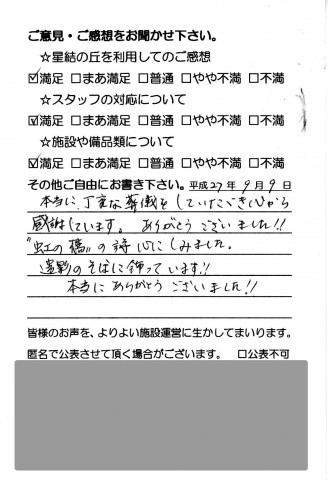 ご意見・ご感想をお聞かせ下さい。
☆星結の丘を利用してのご感想
☑満足 □まあ満足 □普通 □やや不満 □不満
☆スタッフの対応について
☑満足 □まあ満足 □普通 □やや不満 □不満
☆施設や備品類について
☑満足 □まあ満足 □普通 □やや不満 □不満
その他ご自由にお書き下さい。平成27年9月9日
本当に、丁寧な葬儀をしていただき心から
感謝しています。ありがとうございました!!
"虹の橋"の詩心にしみました。
遺影のそばに飾っています!!
本当にありがとうございました!!
皆様のお声を、よりよい施設運営に生かしてまいります。
匿名で公表させて頂く場合がございます。 □公表不可